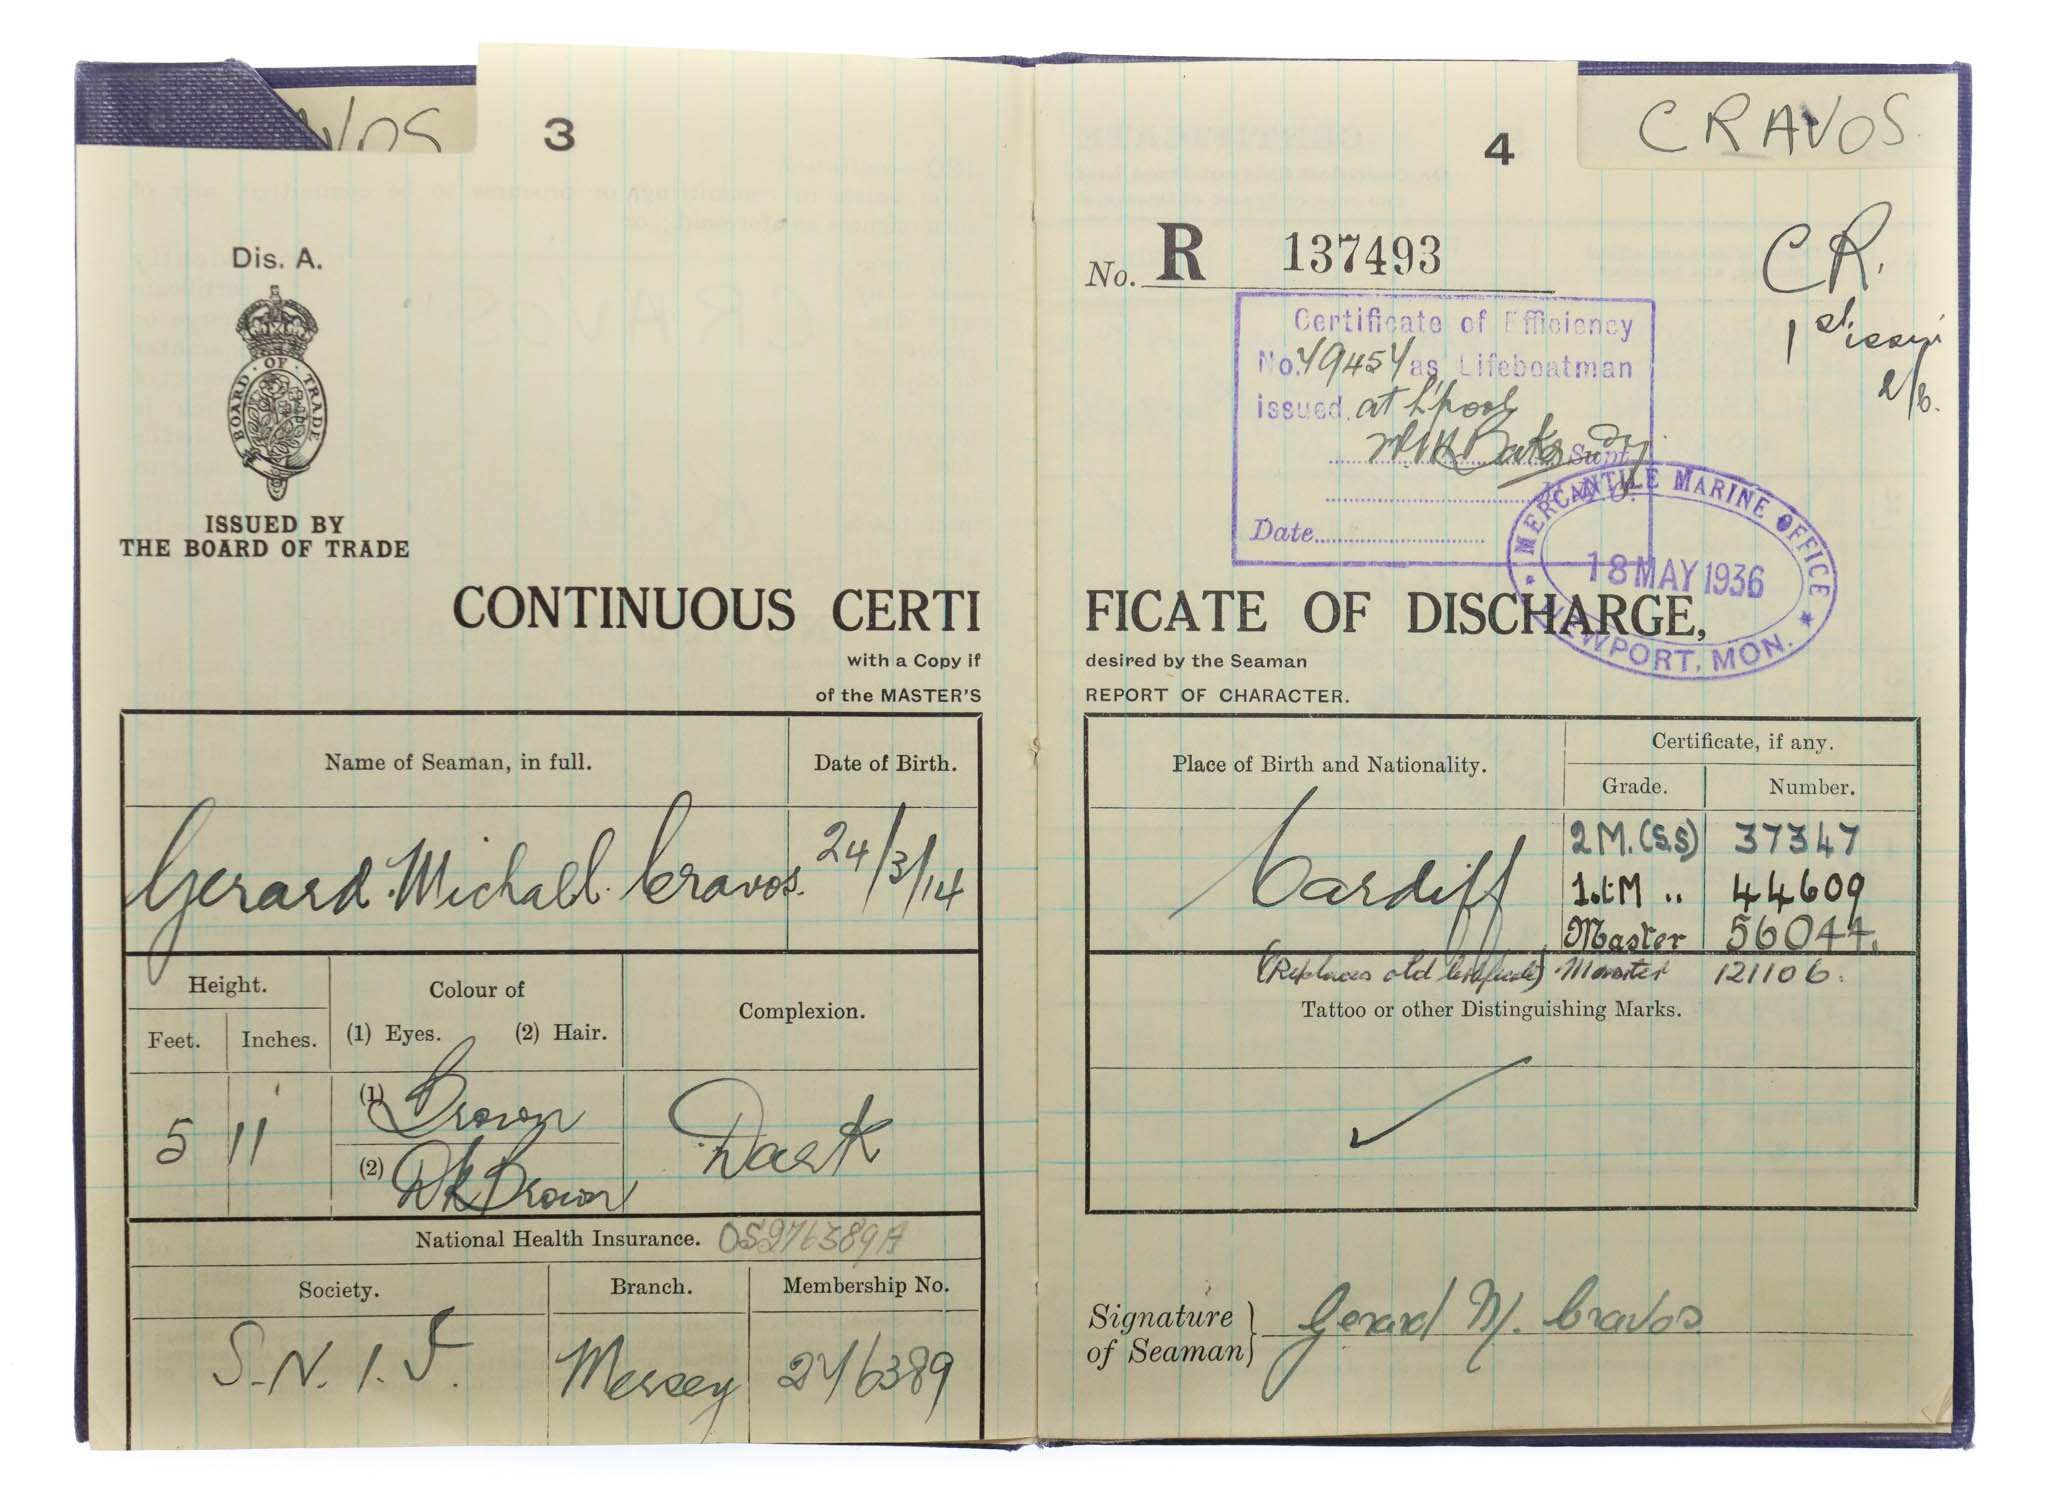 AVOS
3
Dis. A.
BOARD · OF · TRADE
ISSUED BY
THE BOARD OF TRADE
CONTINUOUS CERTI
with a Copy if
of the MASTER'S
Name of Seaman, in full.
Date of Birth.
Gerard Michall Cravos.
24/3/14
Height.
Colour of
Complexion.
Feet.
Inches.
(1) Eyes.
(2) Hair.
5
11
(1) Brown
Dark
(2) Dk Brown
National Health Insurance.
Society.
Branch.
Membership No.
S.N.I.S.
Mersey
276389
CRAVOS
4
No. R 137493
CR.
1st issue
2/6.
Certificate of Efficiency
No. 49454 as Lifeboatman
issued at L'pool
Supt
Date
MERCANTILE MARINE OFFICE
18 MAY 1936
NEWPORT, MON.
FICATE OF DISCHARGE,
desired by the Seaman
REPORT OF CHARACTER.
Place of Birth and Nationality.
Certificate, if any.
Grade.
Number.
Cardiff
2 M. (S.S)
37347
1st M ..
44609
Master
56044.
(Replaces old Certificate) Master 121106.
Tattoo or other Distinguishing Marks.
Signature
of Seaman
Gerard M. Cravos